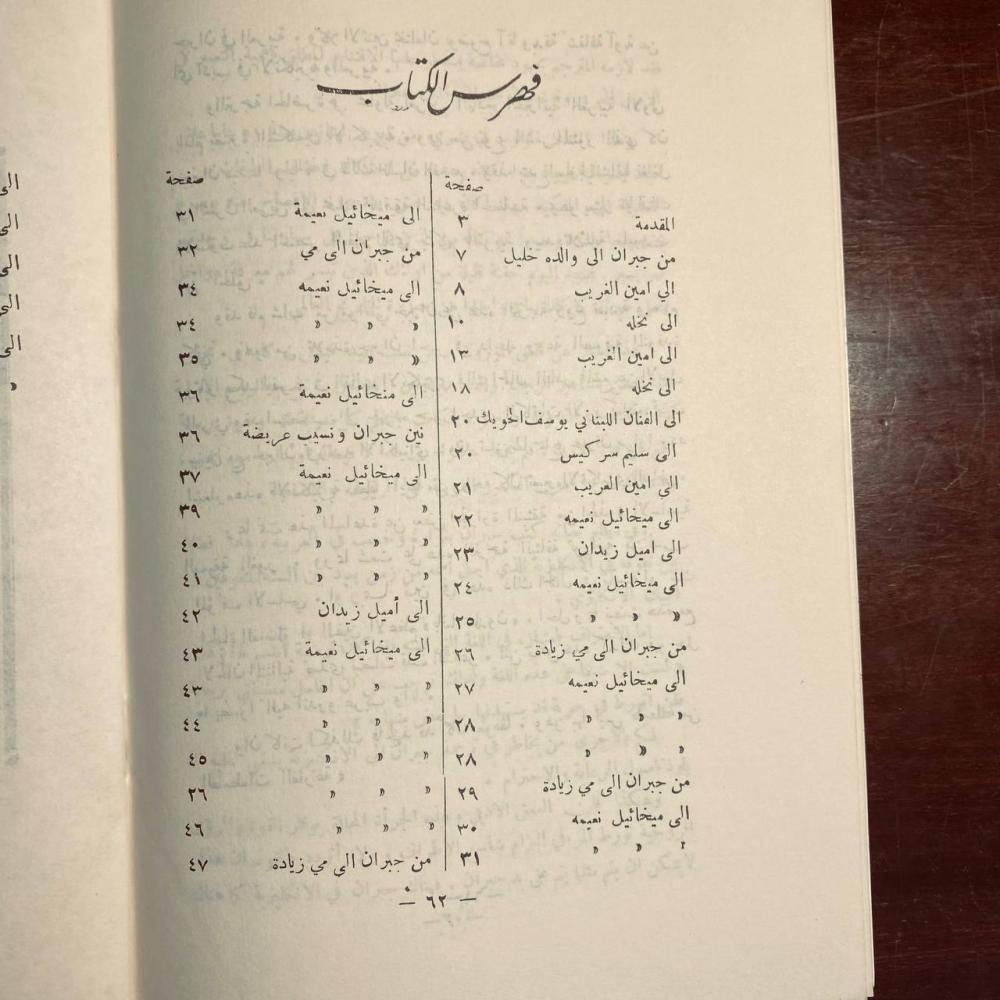 فهرس الكتاب
صفحة
المقدمة ٣
من جبران الى والده خليل ٧
الى امين الغريب ٨
الى نخله ١٠
الى امين الغريب ١٣
الى نخله ١٨
الى الفنان اللبناني يوسف الحويك ٢٠
الى سليم سركيس ٢٠
الى امين الغريب ٢١
الى ميخائيل نعيمه ٢٢
الى اميل زيدان ٢٣
الى ميخائيل نعيمه ٢٤
» » » ٢٥
من جبران الى مي زيادة ٢٦
الى ميخائيل نعيمه ٢٧
» » » ٢٨
» » » ٢٨
من جبران الى مي زيادة ٢٩
الى ميخائيل نعيمه ٣٠
» » » ٣١
صفحة
الى ميخائيل نعيمة ٣١
من جبران الى مي ٣٢
الى ميخائيل نعيمه ٣٤
» » » ٣٤
» » » ٣٥
الى منخائيل نعيمة ٣٦
نين جبران ونسيب عريضة ٣٦
الى ميخائيل نعيمة ٣٧
» » » ٣٩
» » » ٤٠
» » » ٤١
الى أميل زيدان ٤٢
الى ميخائيل نعيمة ٤٣
» » » ٤٣
» » » ٤٤
» » » ٤٥
» » » ٢٦
» » » ٤٦
من جبران الى مي زيادة ٤٧
— ٦٢ —
الى
الى
الى
الى
الى
»